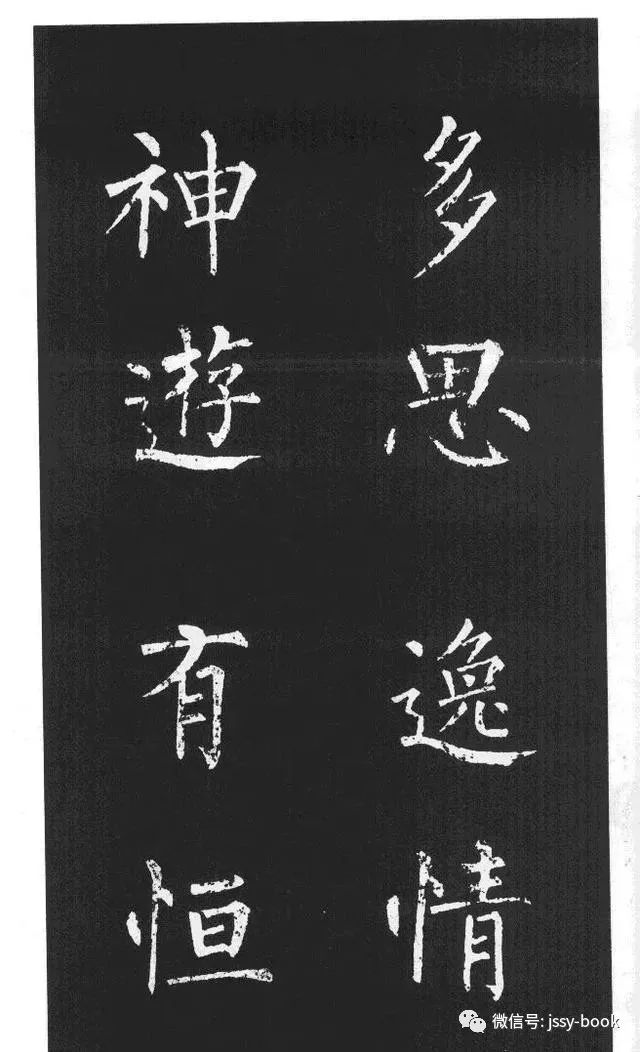 多思逸情
神遊有恒
微信号: jssy-book